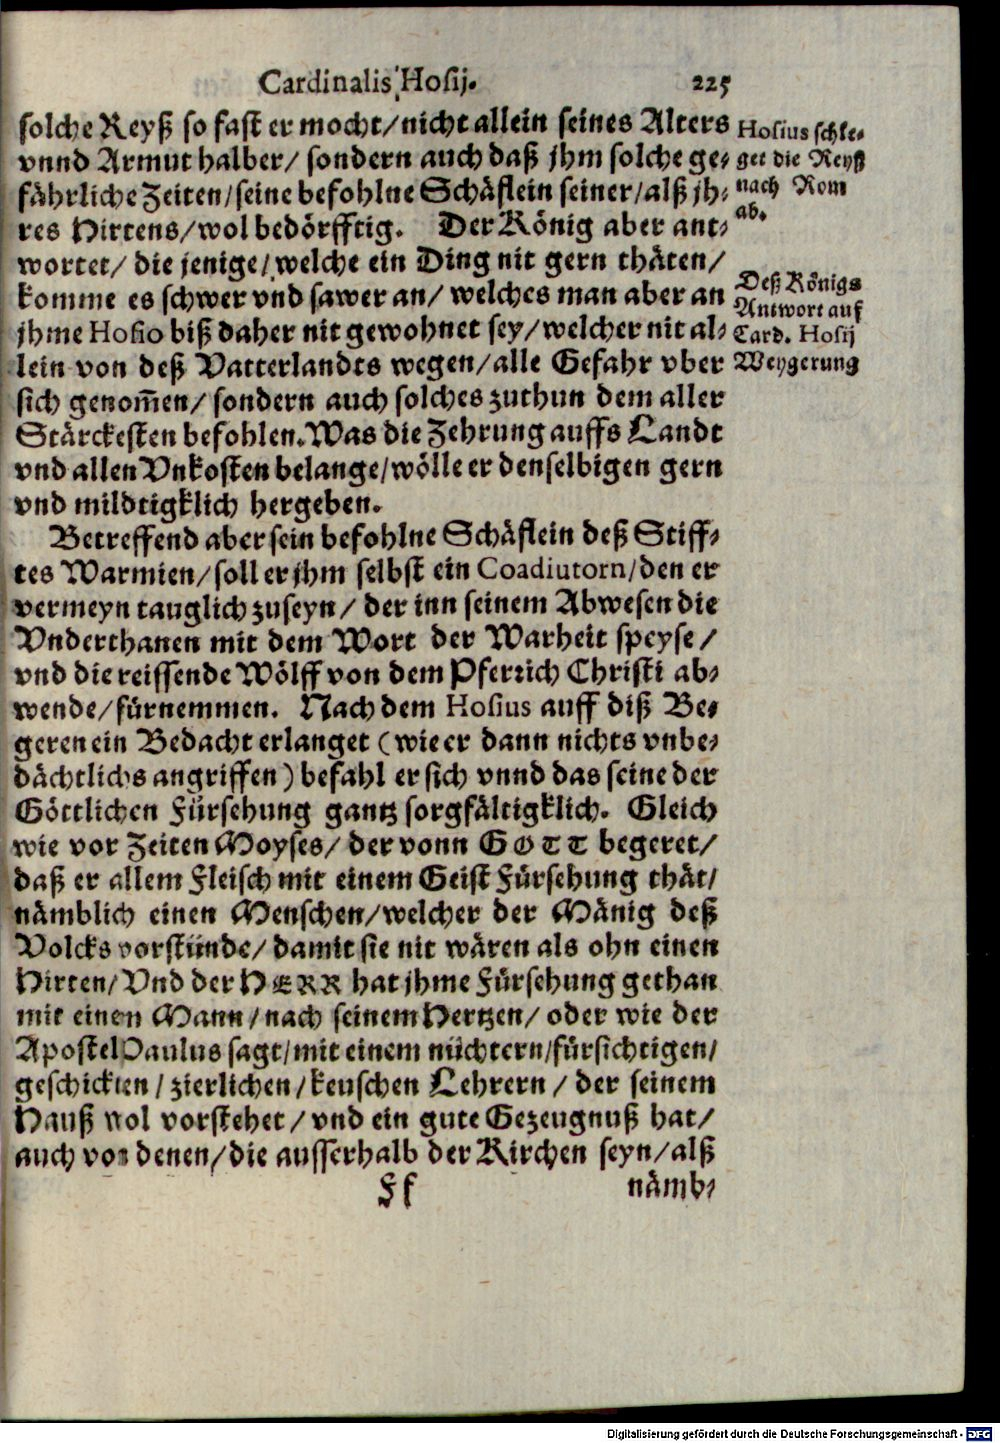 Cardinalis Hosij. 225
solche Reyß so fast er mocht/nicht allein seines Alters
vnnd Armut halber/ sondern auch daß jhm solche ge-
fährliche Zeiten/seine befohlne Schäflein seiner/alß jh-
res Hirtens/wol bedörfftig. Der König aber ant-
wortet/ die jenige/welche ein Ding nit gern thäten/
komme es schwer vnd sawer an/ welches man aber an
jhme Hosio biß daher nit gewohnet sey/welcher nit al-
lein von deß Vatterlandts wegen/alle Gefahr vber
sich genom̃en/ sondern auch solches zuthun dem aller
Stärckesten befohlen. Was die Zehrung auffs Landt
vnd allen Vnkosten belange/wölle er denselbigen gern
vnd mildtigklich hergeben.
Betreffend aber sein befohlne Schäflein deß Stiff-
tes Warmien/soll er jhm selbst ein Coadiutorn/den er
vermeyn tauglich zuseyn/ der inn seinem Abwesen die
Vnderthanen mit dem Wort der Warheit speyse/
vnd die reissende Wölff von dem Pferrich Christi ab-
wende/fürnemmen. Nach dem Hosius auff diß Be-
geren ein Bedacht erlanget (wie er dann nichts vnbe-
dächtlichs angriffen) befahl er sich vnnd das seine der
Göttlichen Fürsehung gantz sorgfältigklich. Gleich
wie vor Zeiten Moyses/ der vonn GOTT begeret/
daß er allem Fleisch mit einem Geist Fürsehung thät/
nämblich einen Menschen/welcher der Mänig deß
Volcks vorstünde/ damit sie nit wären als ohn einen
Hirten/ Vnd der HERR hat jhme Fürsehung gethan
mit einen Mann/nach seinem Hertzen/ oder wie der
Apostel Paulus sagt/mit einem nüchtern/fürsichtigen/
geschickten/zierlichen/keuschen Lehrern/ der seinem
Hauß wol vorstehet/ vnd ein gute Gezeugnuß hat/
auch von denen/die ausserhalb der Kirchen seyn/alß
Ff nämb-
Hosius schle-
get die Reyß
nach Rom
ab.
Deß Königs
Antwort auf
Card. Hosij
Weygerung
Digitalisierung gefördert durch die Deutsche Forschungsgemeinschaft - DFG